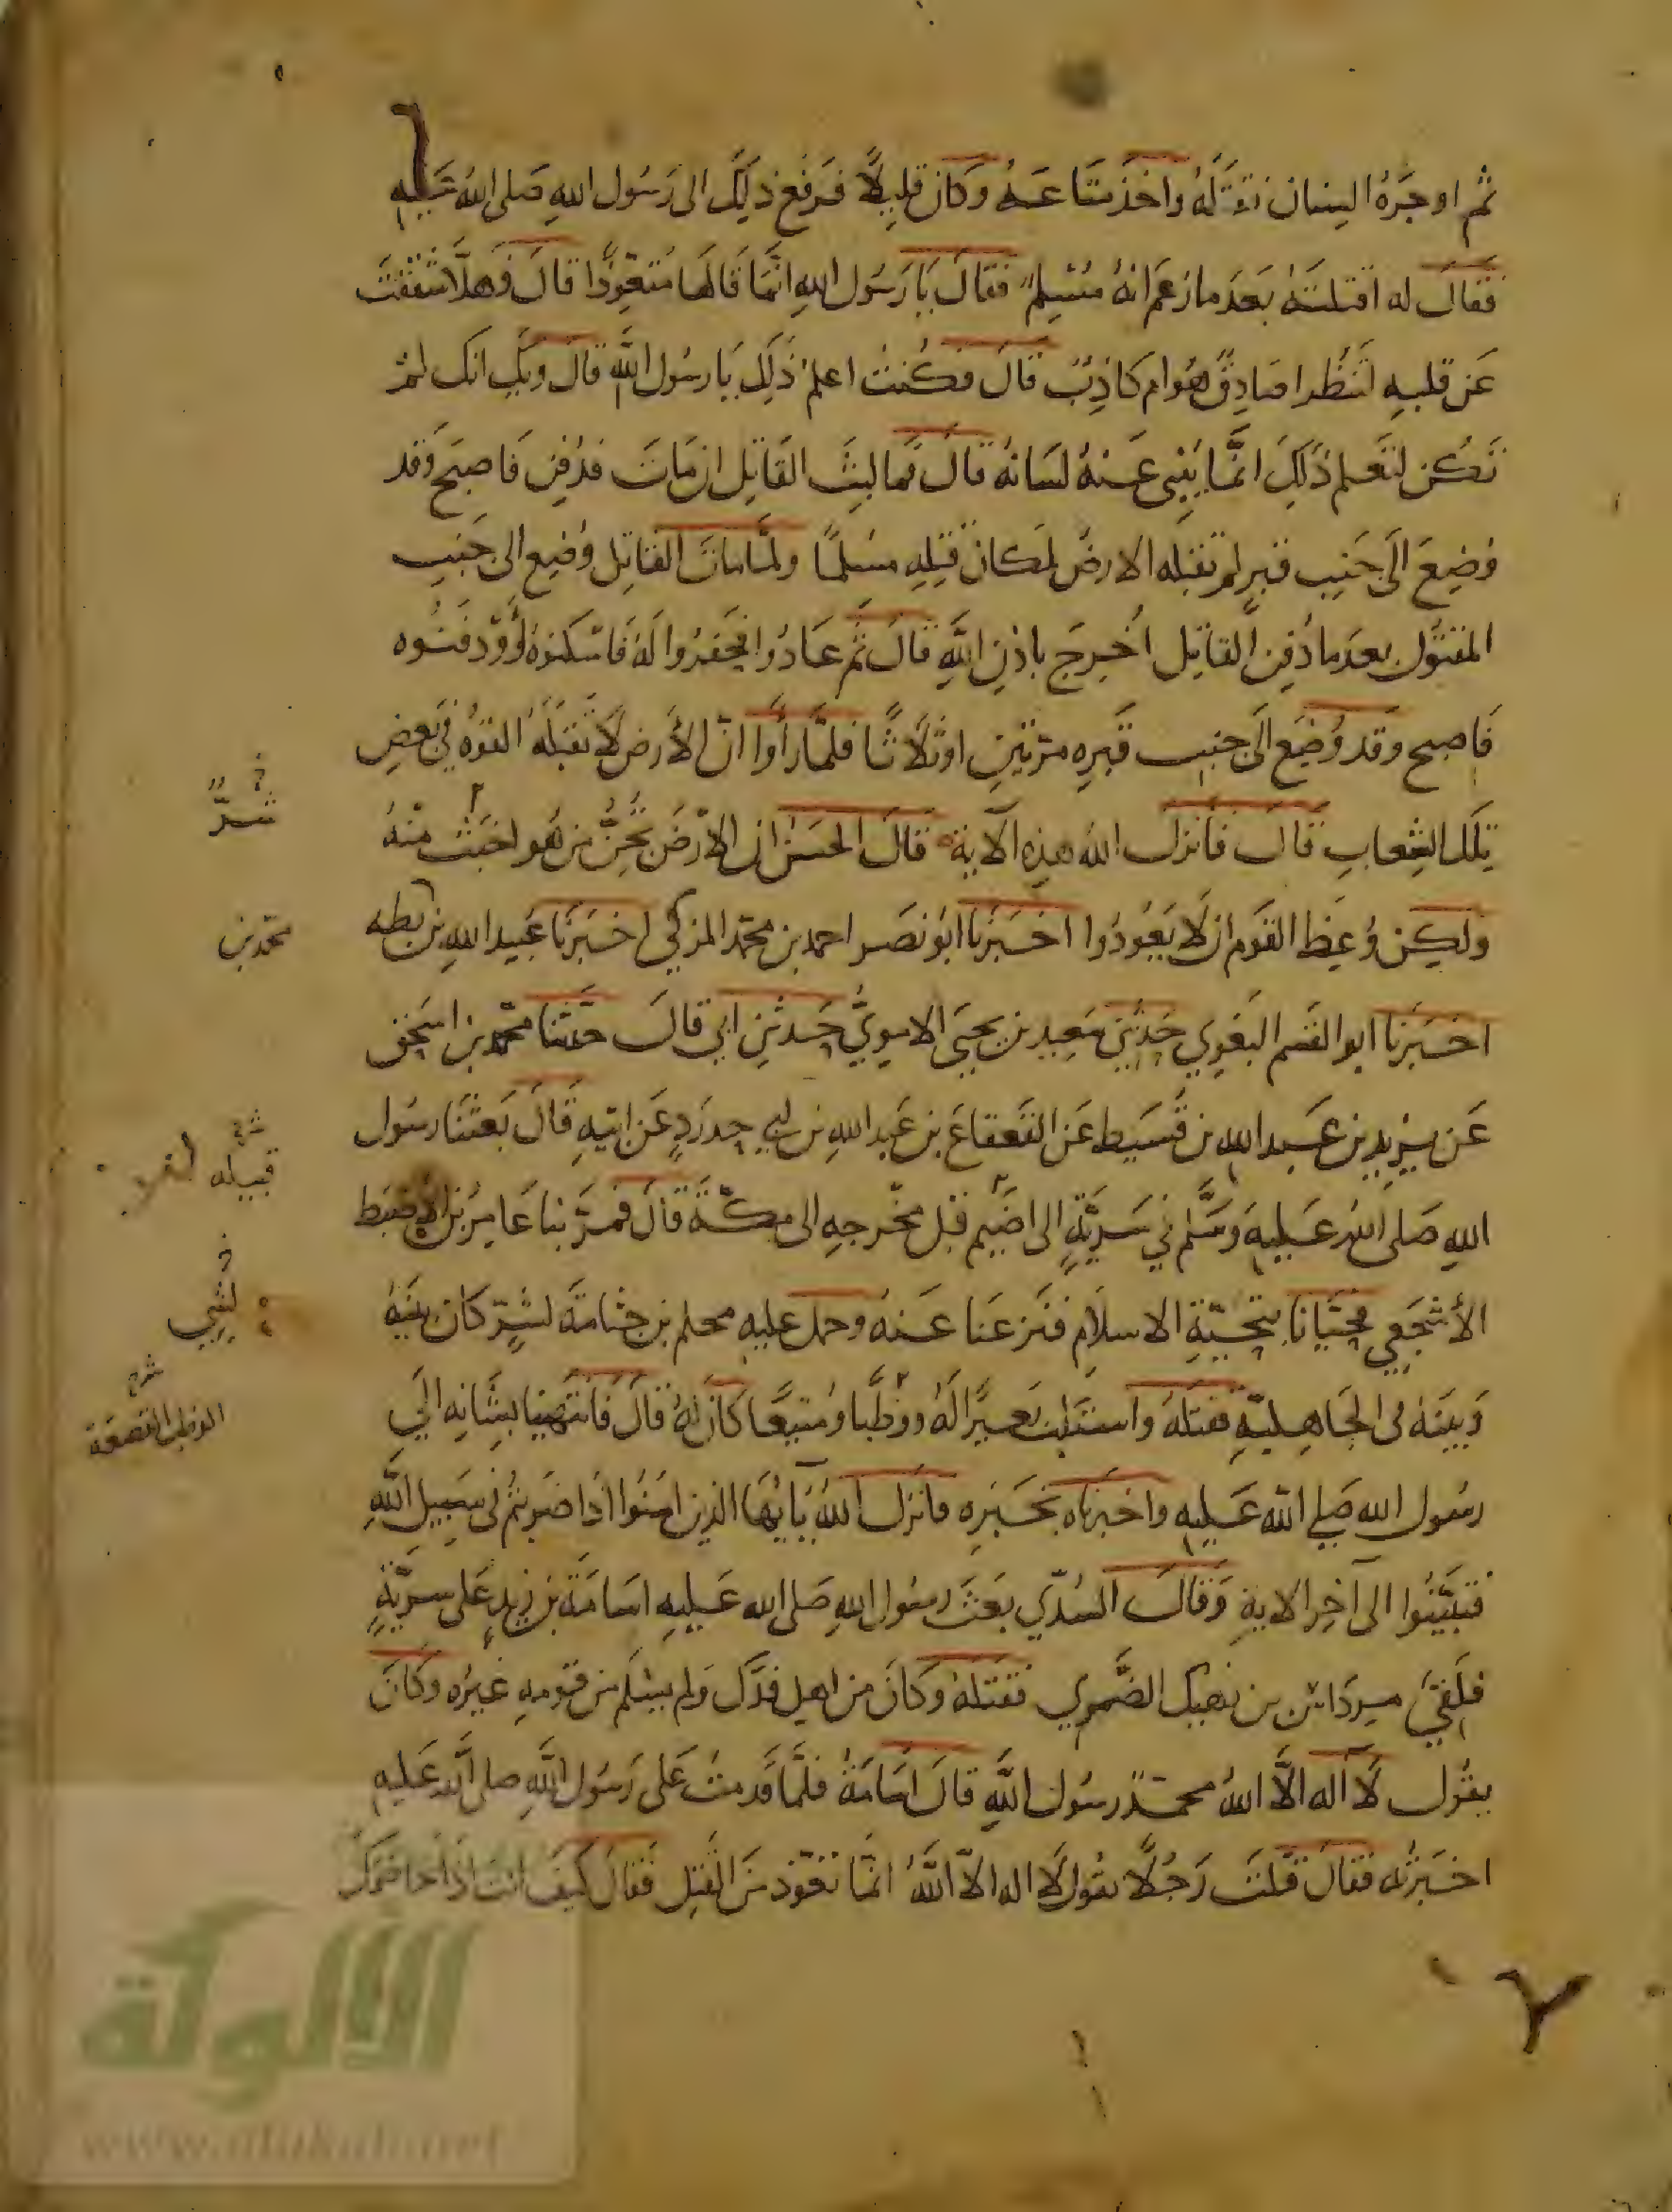 ثم اوجَرَهُ السِنان فقَتَلَهُ واخذ متاعَهُ وكان قليلًا فرفع ذلك الى رَسُول اللهِ صَلى اللهُ عَليهِ
فقالَ له اقتلتَهُ بَعدَ ما زعَم انهُ مُسْلِمٌ فقالَ يَا رَسُول اللهِ انّمَا قَالهَا مُتعوِّذًا قالَ فَهلَّا شقَقْتَ
عَن قلبهِ لتَنظُر اصَادِقٌ هُوَ ام كاذِبٌ قالَ فكُنتُ اعلمُ ذَلِكَ يَا رسُول اللهِ قالَ ويْكَ انك لم
تَكُن لتعلم ذَلِكَ انّما يُبْيِى عَنهُ لسَانهُ قالَ فما لبثَ القَاتِل ان مَاتَ فدُفِن فَاصبَح وَقد
وُضِعَ الَى جَنبِ قبرِهِ لم تقبله الارضُ لمكان قَتِلهِ مسلمًا ولمّا ماتَ القاتِل وُضِع الى جَنبِ
المقتُول بعدَ ما دُفِن القاتِل اُخرِجَ باذنِ اللهِ قالَ ثم عَادُوا فحَفَرُوا لَهُ فَامْكنوهُ وَدفنُوه
فَاصبح وقد وُضِعَ الَى جنبِ قَبرِهِ مرّتَينِ او ثلاثًا فلمّا رأوا انّ الأرضَ لَا تقبَلُهُ القوهُ في بَعضِ
تِلكَ الشِعابِ قالَ فانزل اللهُ هذِهِ الآية قالَ الحسَن ان الارْضَ تُجِنُّ من هُو اخبَث مِنْهُ
ولكِن وُعِظ القَوم ان لَا يَعُودُوا اخبَرنا ابُو نصَر احمد بن محمد المزكّي اخبَرنا عُبيد اللهِ بن بطه
اخبَرَنا ابو القسم البغَوِي حَدثني سَعِيد بن يحيَى الامويّ حَدثنِي ابي قالَ حدّثنا محمّد بن اسحٰق
عَن يزِيد بن عَبد اللهِ بن قُسَيط عَن القَعقاع بن عَبد اللهِ بن ابي حدرَدٍ عَن ابيهِ قالَ بَعثنَا رسُول
اللهِ صَلى اللهُ عَليهِ وسَلَّم في سَرِيَّةٍ الى اضَمٍ قبل مخرجهِ الى مكّة قالَ فمرّ بنا عَامِرُ بن الاضبَط
الأشجَعِي فحَيّانا بتحيّةِ الاسلامِ فنزعنا عَنهُ وحمل عليهِ محلم بن جثامَة لشرٍّ كان بينهُ
وَبَينهُ في الجَاهِليّةِ فقتلهُ واستلب بَعيرًا لَهُ ووطبًا ومُتيعًا كانَ لهُ قالَ فانتَهينا بشَانِه الَى
رسُول الله صَلى اللهُ عَليهِ واخبرنَاه بخبَرِه فانزل اللهُ يَا أيهَا الذين امَنُوا اذا ضَربتُم في سَبيلِ اللهِ
فتبيّنُوا الى آخِر الايةِ وَقالَ السُدّي بعَثَ رسُول اللهِ صَلى الله عَليهِ اسَامَة بن زيدٍ عَلى سرِيّةٍ
فلَقي مِردَاس بن نهيك الضَّمرِي فقتلهُ وكانَ من اهلِ فدَك وَلم يسْلم من قومِهِ غيرُه وكانَ
يقُول لَا اله الّا اللهُ محمّدٌ رسُول اللهِ قالَ اسَامَةُ فلمّا قَدمتُ عَلى رَسُول اللهِ صلى الله عَليهِ
اخبَرتُه فقالَ قتلتَ رَجُلًا يقول لَا اله الّا اللهُ انّما تعَوّذ منَ القتلِ فقالَ كيفَ انتَ اذا خاصَمكَ
شرّ
محمد بن
قبيله
ليثي
الوطب القصعة
الألوكة
www.alukah.net